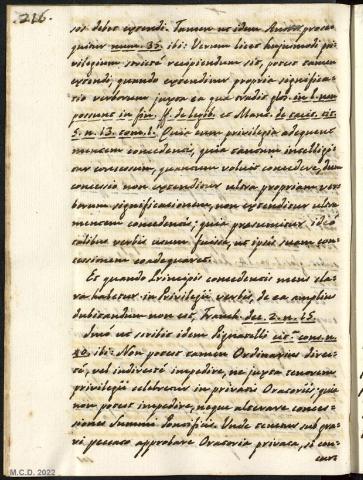 216.
sit debet extendi. Tamen ut idem Auctor prose
quitur num. 35. ibi: Verum licet hujusmodi pri
vilegium stricte recipiendum sit, potest tamen
extendi, quando extenditur propria significa
tio verborum juxta ea quæ tradit glos. in l. non
possunt in fin. ff. de legib.
5. n. 13. tom. 1. Quia cum privilegia adæquent
mentem concedentis, quia tantum intelligi
tur concessum, quantum voluit concedere, dum
concessio non extenditur ultra propriam ver
borum significationem, non extenditur ultra
mentem concedentis; quia præsumitur ideo
talibus verbis usum fuisse, ut ipsis suam con
cessionem coadæquaret.
Et quando Principis concedentis mens cla
ra habetur in Privilegii verbis, de ea amplius
dubitandum non est, Franch. dec. 2. n. 15.
Imo ut scribit idem Pignatelli cit. cons. n.
22. ibi: Non potest tamen Ordinarius direc
te, vel indirecte impedire, ne juxta tenorem
privilegii celebretur in privatis Oratoriis; quia
non potest impedire, neque alterare conces
siones Summi Pontificis. Unde tenetur sub gra
vi peccato approbare Oratoria privata, si con
M.C.D. 2022